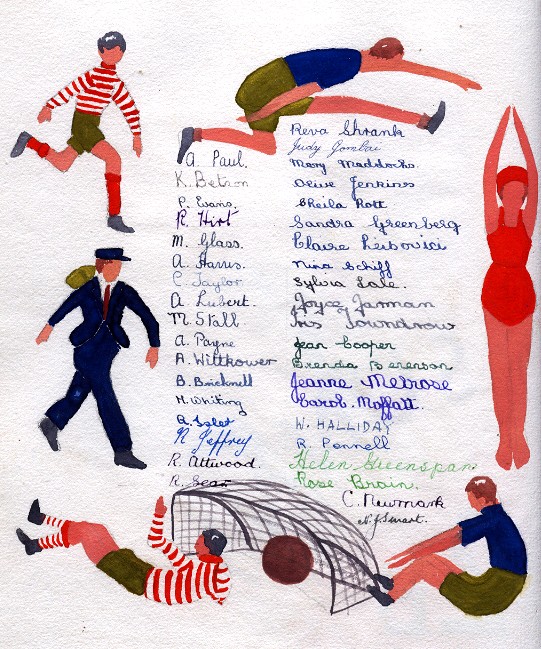 A. Paul.
K. Betson
P. Evans.
R. Hirt
M. Glass.
A. Harris.
C. Taylor
A. Lubert.
M. Stall
A. Payne
A. Wittkower
B. Bricknell
M. Whiting
N. Jeffrey
R. Attwood.
R. Sear
Reva Shrank
Judy Gombai
Mary Maddocks.
Olive Jenkins
Sheila Rott
Sandra Greenberg
Claire Leibovici
Nina Schiff
Sylvia Lale.
Joyce Jarman
Iris Toundrow
Jean Cooper
Brenda Berenson
Jeanne Melrose
Carol. Moffatt.
W. HALLIDAY
R. Pennell
Helen Greenspan
Rose Brain.
C. Newmark
N. J. Smart.